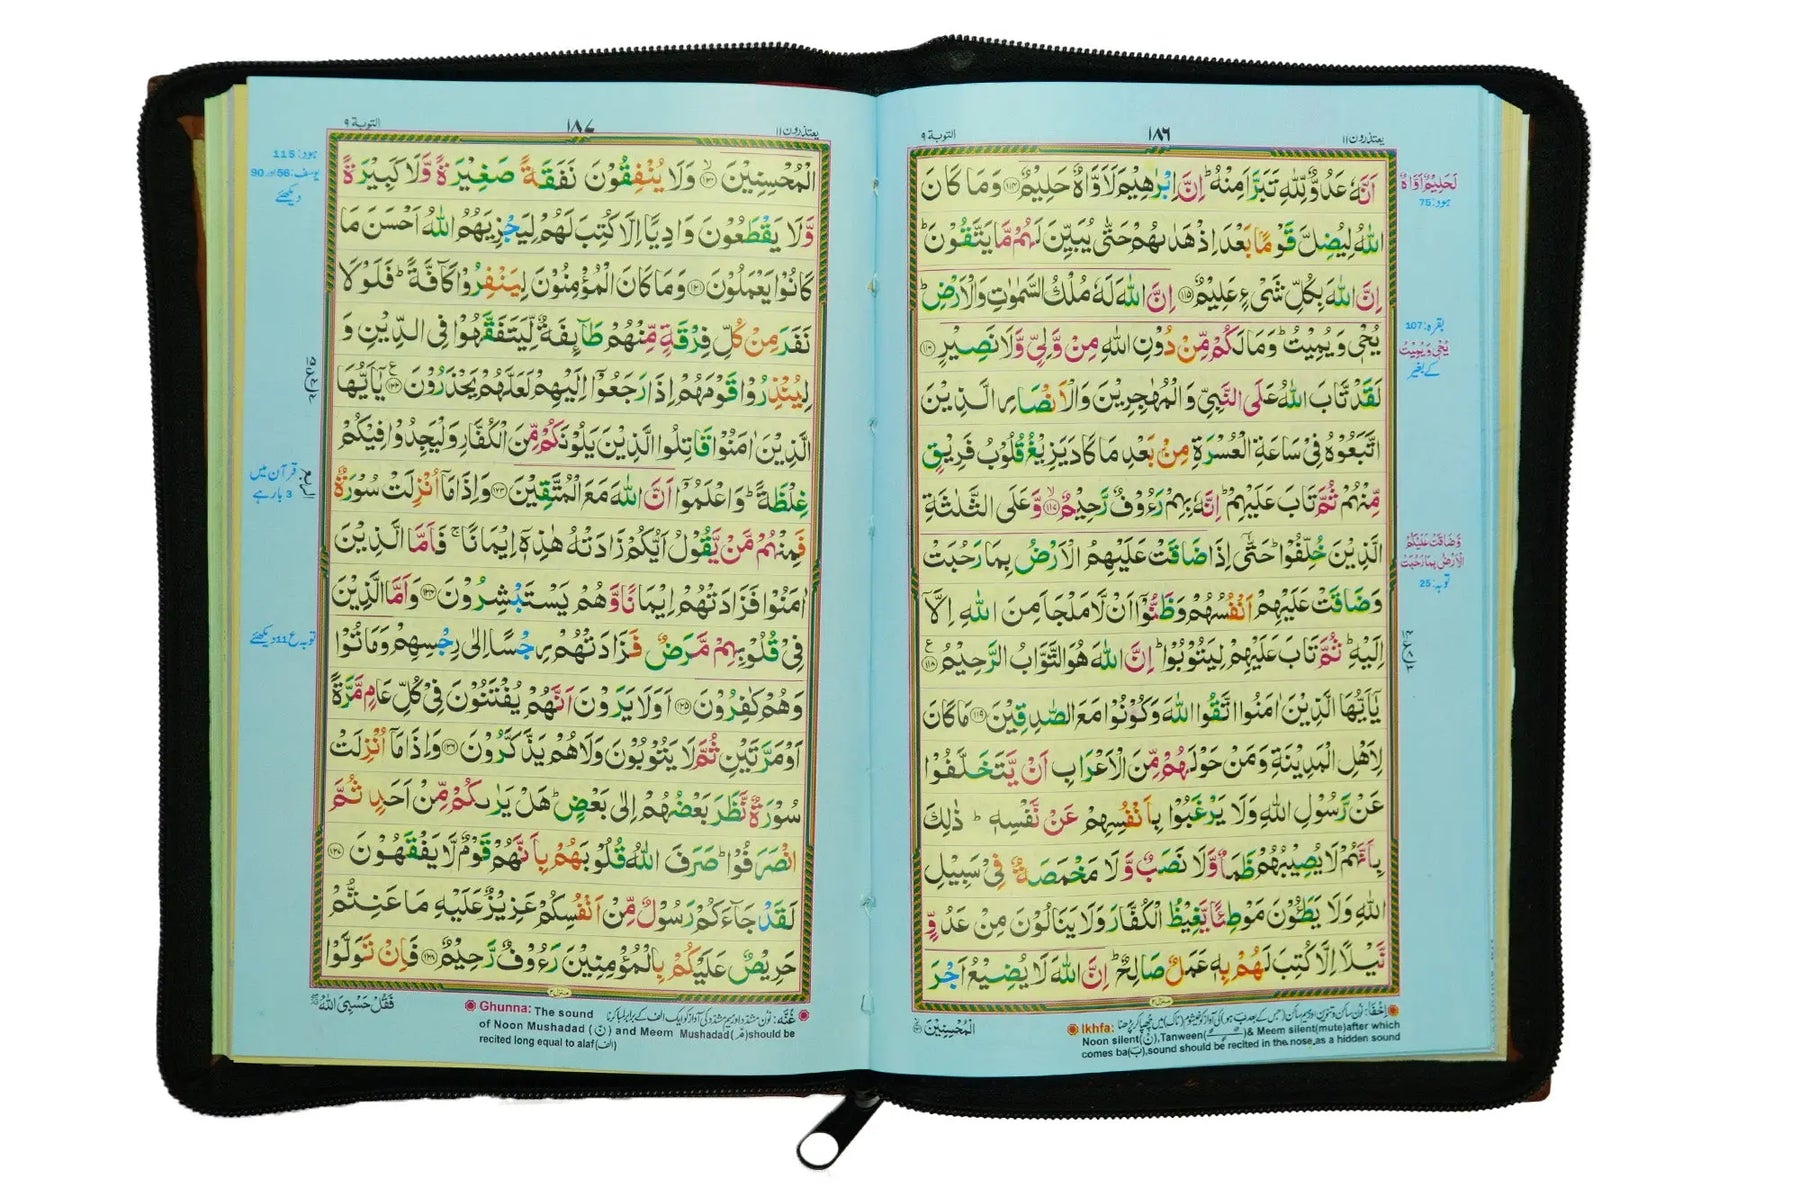 یعتذرون ۱۱
۱۸۶
التوبة ۹
اَنَّهٗ عَدُوٌّ لِّلّٰهِ تَبَرَّاَ مِنْهُ ؕ اِنَّ اِبْرٰهِيْمَ لَاَوَّاهٌ حَلِيْمٌ ﴿۱۱۴﴾ وَمَا كَانَ
اللّٰهُ لِيُضِلَّ قَوْمًۢا بَعْدَ اِذْ هَدٰىهُمْ حَتّٰى يُبَيِّنَ لَهُمْ مَّا يَتَّقُوْنَ ؕ
اِنَّ اللّٰهَ بِكُلِّ شَىْءٍ عَلِيْمٌ ﴿۱۱۵﴾ اِنَّ اللّٰهَ لَهٗ مُلْكُ السَّمٰوٰتِ وَالْاَرْضِ ؕ
يُحْىٖ وَيُمِيْتُ ؕ وَمَا لَكُمْ مِّنْ دُوْنِ اللّٰهِ مِنْ وَّلِىٍّ وَّلَا نَصِيْرٍ ﴿۱۱۶﴾
لَقَدْ تَّابَ اللّٰهُ عَلَى النَّبِىِّ وَالْمُهٰجِرِيْنَ وَالْاَنْصَارِ الَّذِيْنَ
اتَّبَعُوْهُ فِىْ سَاعَةِ الْعُسْرَةِ مِنْۢ بَعْدِ مَا كَادَ يَزِيْغُ قُلُوْبُ فَرِيْقٍ
مِّنْهُمْ ثُمَّ تَابَ عَلَيْهِمْ ؕ اِنَّهٗ بِهِمْ رَءُوْفٌ رَّحِيْمٌ ﴿۱۱۷﴾ۙ وَّعَلَى الثَّلٰثَةِ
الَّذِيْنَ خُلِّفُوْا ؕ حَتّٰٓى اِذَا ضَاقَتْ عَلَيْهِمُ الْاَرْضُ بِمَا رَحُبَتْ
وَضَاقَتْ عَلَيْهِمْ اَنْفُسُهُمْ وَظَنُّوْٓا اَنْ لَّا مَلْجَاَ مِنَ اللّٰهِ اِلَّآ
اِلَيْهِ ؕ ثُمَّ تَابَ عَلَيْهِمْ لِيَتُوْبُوْا ؕ اِنَّ اللّٰهَ هُوَ التَّوَّابُ الرَّحِيْمُ ﴿۱۱۸﴾
يٰٓاَيُّهَا الَّذِيْنَ اٰمَنُوا اتَّقُوا اللّٰهَ وَكُوْنُوْا مَعَ الصّٰدِقِيْنَ ﴿۱۱۹﴾ مَا كَانَ
لِاَهْلِ الْمَدِيْنَةِ وَمَنْ حَوْلَهُمْ مِّنَ الْاَعْرَابِ اَنْ يَّتَخَلَّفُوْا
عَنْ رَّسُوْلِ اللّٰهِ وَلَا يَرْغَبُوْا بِاَنْفُسِهِمْ عَنْ نَّفْسِهٖ ؕ ذٰلِكَ
بِاَنَّهُمْ لَا يُصِيْبُهُمْ ظَمَاٌ وَّلَا نَصَبٌ وَّلَا مَخْمَصَةٌ فِىْ سَبِيْلِ
اللّٰهِ وَلَا يَطَئُوْنَ مَوْطِئًا يَّغِيْظُ الْكُفَّارَ وَلَا يَنَالُوْنَ مِنْ عَدُوٍّ
نَّيْلًا اِلَّا كُتِبَ لَهُمْ بِهٖ عَمَلٌ صَالِحٌ ؕ اِنَّ اللّٰهَ لَا يُضِيْعُ اَجْرَ
منزل ۲
لَحَلِيْمٌ اَوَّاهٌ
ہود: 75
بقرہ: 107
يُحْىٖ وَيُمِيْتُ
کے بغیر
وَّضَاقَتْ عَلَيْكُمُ
الْاَرْضُ بِمَا رَحُبَتْ
توبہ: 25
Ikhfa:
Noon silent(نْ),Tanween & Meem silent(mute)after which
comes ba(ب),sound should be recited in the nose,as a hidden sound
الْمُحْسِنِيْنَ
یعتذرون ۱۱
۱۸۷
التوبة ۹
الْمُحْسِنِيْنَ ﴿۱۲۰﴾ۙ وَلَا يُنْفِقُوْنَ نَفَقَةً صَغِيْرَةً وَّلَا كَبِيْرَةً
وَّلَا يَقْطَعُوْنَ وَادِيًا اِلَّا كُتِبَ لَهُمْ لِيَجْزِيَهُمُ اللّٰهُ اَحْسَنَ مَا
كَانُوْا يَعْمَلُوْنَ ﴿۱۲۱﴾ وَمَا كَانَ الْمُؤْمِنُوْنَ لِيَنْفِرُوْا كَآفَّةً ؕ فَلَوْلَا
نَفَرَ مِنْ كُلِّ فِرْقَةٍ مِّنْهُمْ طَآئِفَةٌ لِّيَتَفَقَّهُوْا فِى الدِّيْنِ وَ
لِيُنْذِرُوْا قَوْمَهُمْ اِذَا رَجَعُوْٓا اِلَيْهِمْ لَعَلَّهُمْ يَحْذَرُوْنَ ﴿۱۲۲﴾ يٰٓاَيُّهَا
الَّذِيْنَ اٰمَنُوْا قَاتِلُوا الَّذِيْنَ يَلُوْنَكُمْ مِّنَ الْكُفَّارِ وَلْيَجِدُوْا فِيْكُمْ
غِلْظَةً ؕ وَاعْلَمُوْٓا اَنَّ اللّٰهَ مَعَ الْمُتَّقِيْنَ ﴿۱۲۳﴾ وَاِذَا مَآ اُنْزِلَتْ سُوْرَةٌ
فَمِنْهُمْ مَّنْ يَّقُوْلُ اَيُّكُمْ زَادَتْهُ هٰذِهٖٓ اِيْمَانًا ۚ فَاَمَّا الَّذِيْنَ
اٰمَنُوْا فَزَادَتْهُمْ اِيْمَانًا وَّهُمْ يَسْتَبْشِرُوْنَ ﴿۱۲۴﴾ وَاَمَّا الَّذِيْنَ
فِىْ قُلُوْبِهِمْ مَّرَضٌ فَزَادَتْهُمْ رِجْسًا اِلٰى رِجْسِهِمْ وَمَاتُوْا
وَهُمْ كٰفِرُوْنَ ﴿۱۲۵﴾ اَوَلَا يَرَوْنَ اَنَّهُمْ يُفْتَنُوْنَ فِىْ كُلِّ عَامٍ مَّرَّةً
اَوْ مَرَّتَيْنِ ثُمَّ لَا يَتُوْبُوْنَ وَلَا هُمْ يَذَّكَّرُوْنَ ﴿۱۲۶﴾ وَاِذَا مَآ اُنْزِلَتْ
سُوْرَةٌ نَّظَرَ بَعْضُهُمْ اِلٰى بَعْضٍ ؕ هَلْ يَرٰىكُمْ مِّنْ اَحَدٍ ثُمَّ
انْصَرَفُوْا ؕ صَرَفَ اللّٰهُ قُلُوْبَهُمْ بِاَنَّهُمْ قَوْمٌ لَّا يَفْقَهُوْنَ ﴿۱۲۷﴾
لَقَدْ جَآءَكُمْ رَسُوْلٌ مِّنْ اَنْفُسِكُمْ عَزِيْزٌ عَلَيْهِ مَا عَنِتُّمْ
حَرِيْصٌ عَلَيْكُمْ بِالْمُؤْمِنِيْنَ رَءُوْفٌ رَّحِيْمٌ ﴿۱۲۸﴾ فَاِنْ تَوَلَّوْا
منزل ۲
ہود: 115
یوسف: 56 اور 90
دیکھئے
الربع
قرآن میں
3 بار ہے
توبہ ع 11 دیکھئے
Ghunna: The sound
of Noon Mushadad (نّ) and Meem Mushadad(مّ)should be
recited long equal to alaf(الف)
فَقُلْ حَسْبِىَ اللّٰهُ